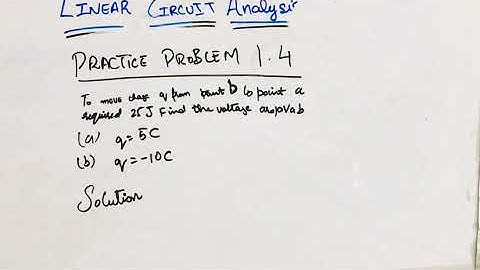 LINEAR CIRCUIT Analysis
PRACTICE PROBLEM 1.4
To move charge q from point b to point a
required 25 J Find the voltage drop Vab
(a) q = 5C
(b) q = -10C
Solution